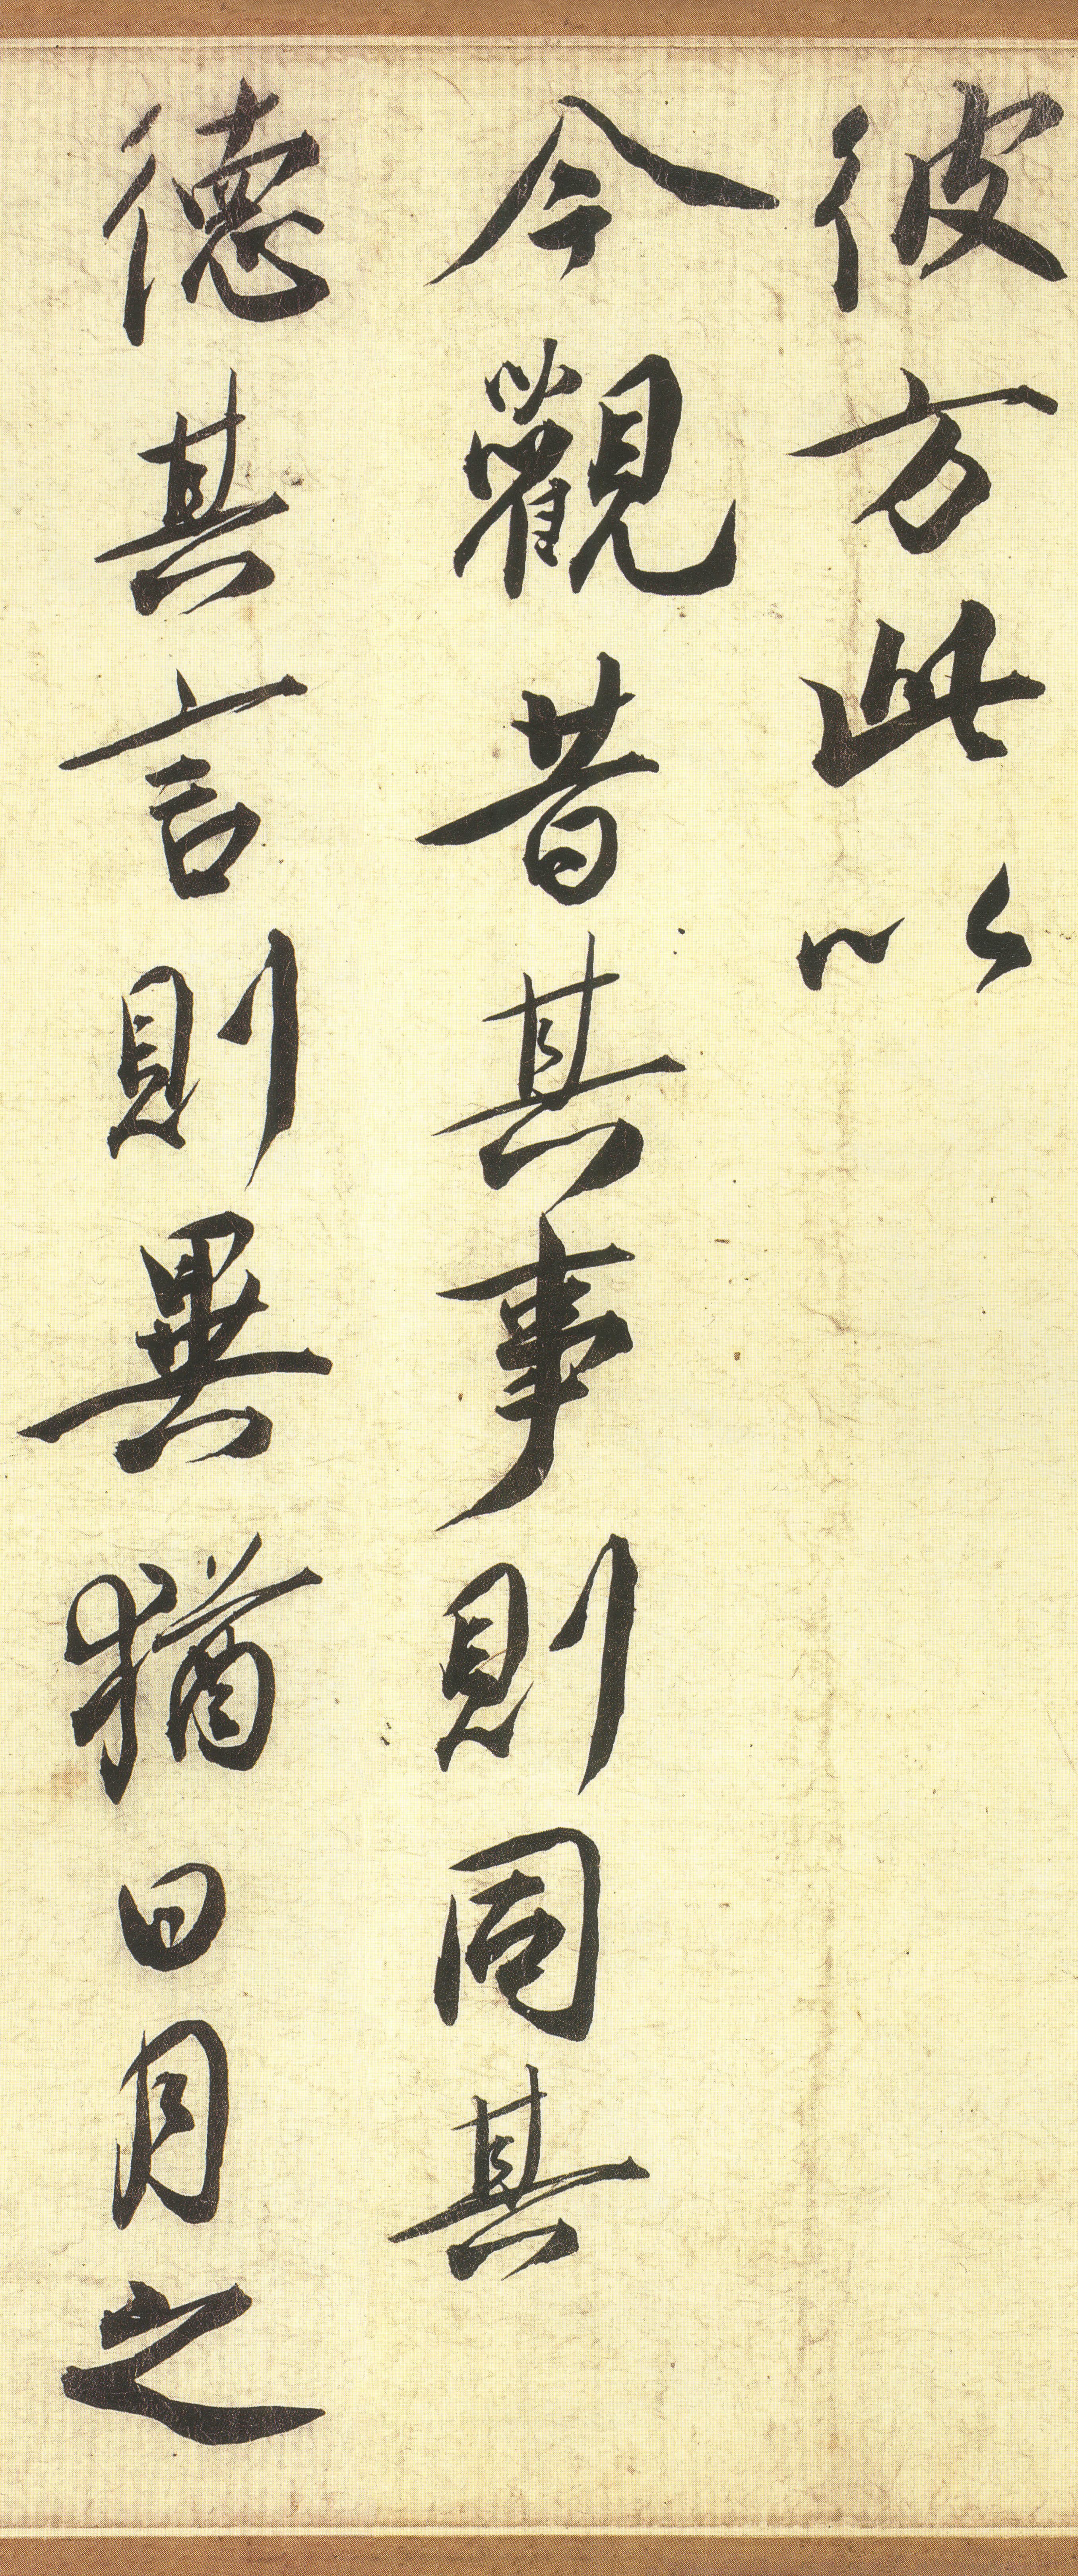 彼方此以
今觀昔其事則同其
德其言則異猶日月之